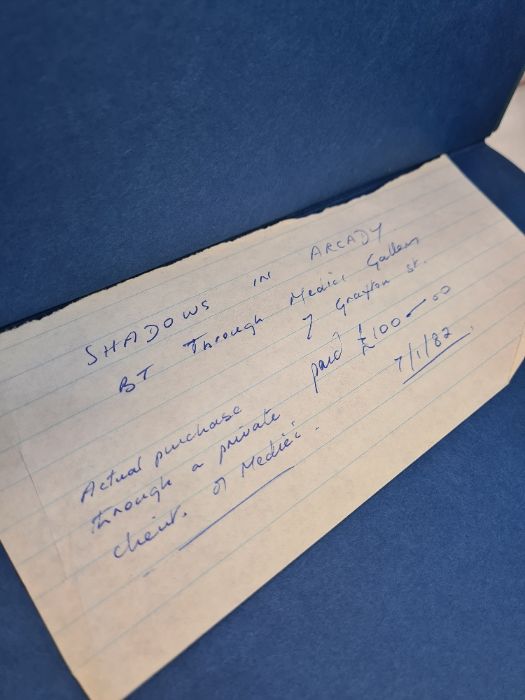 SHADOWS IN ARCADY
BT Through Medici Gallery
7 Grafton St.
Actual purchase paid £100-00
through a private 7/1/82
client. of Medici.